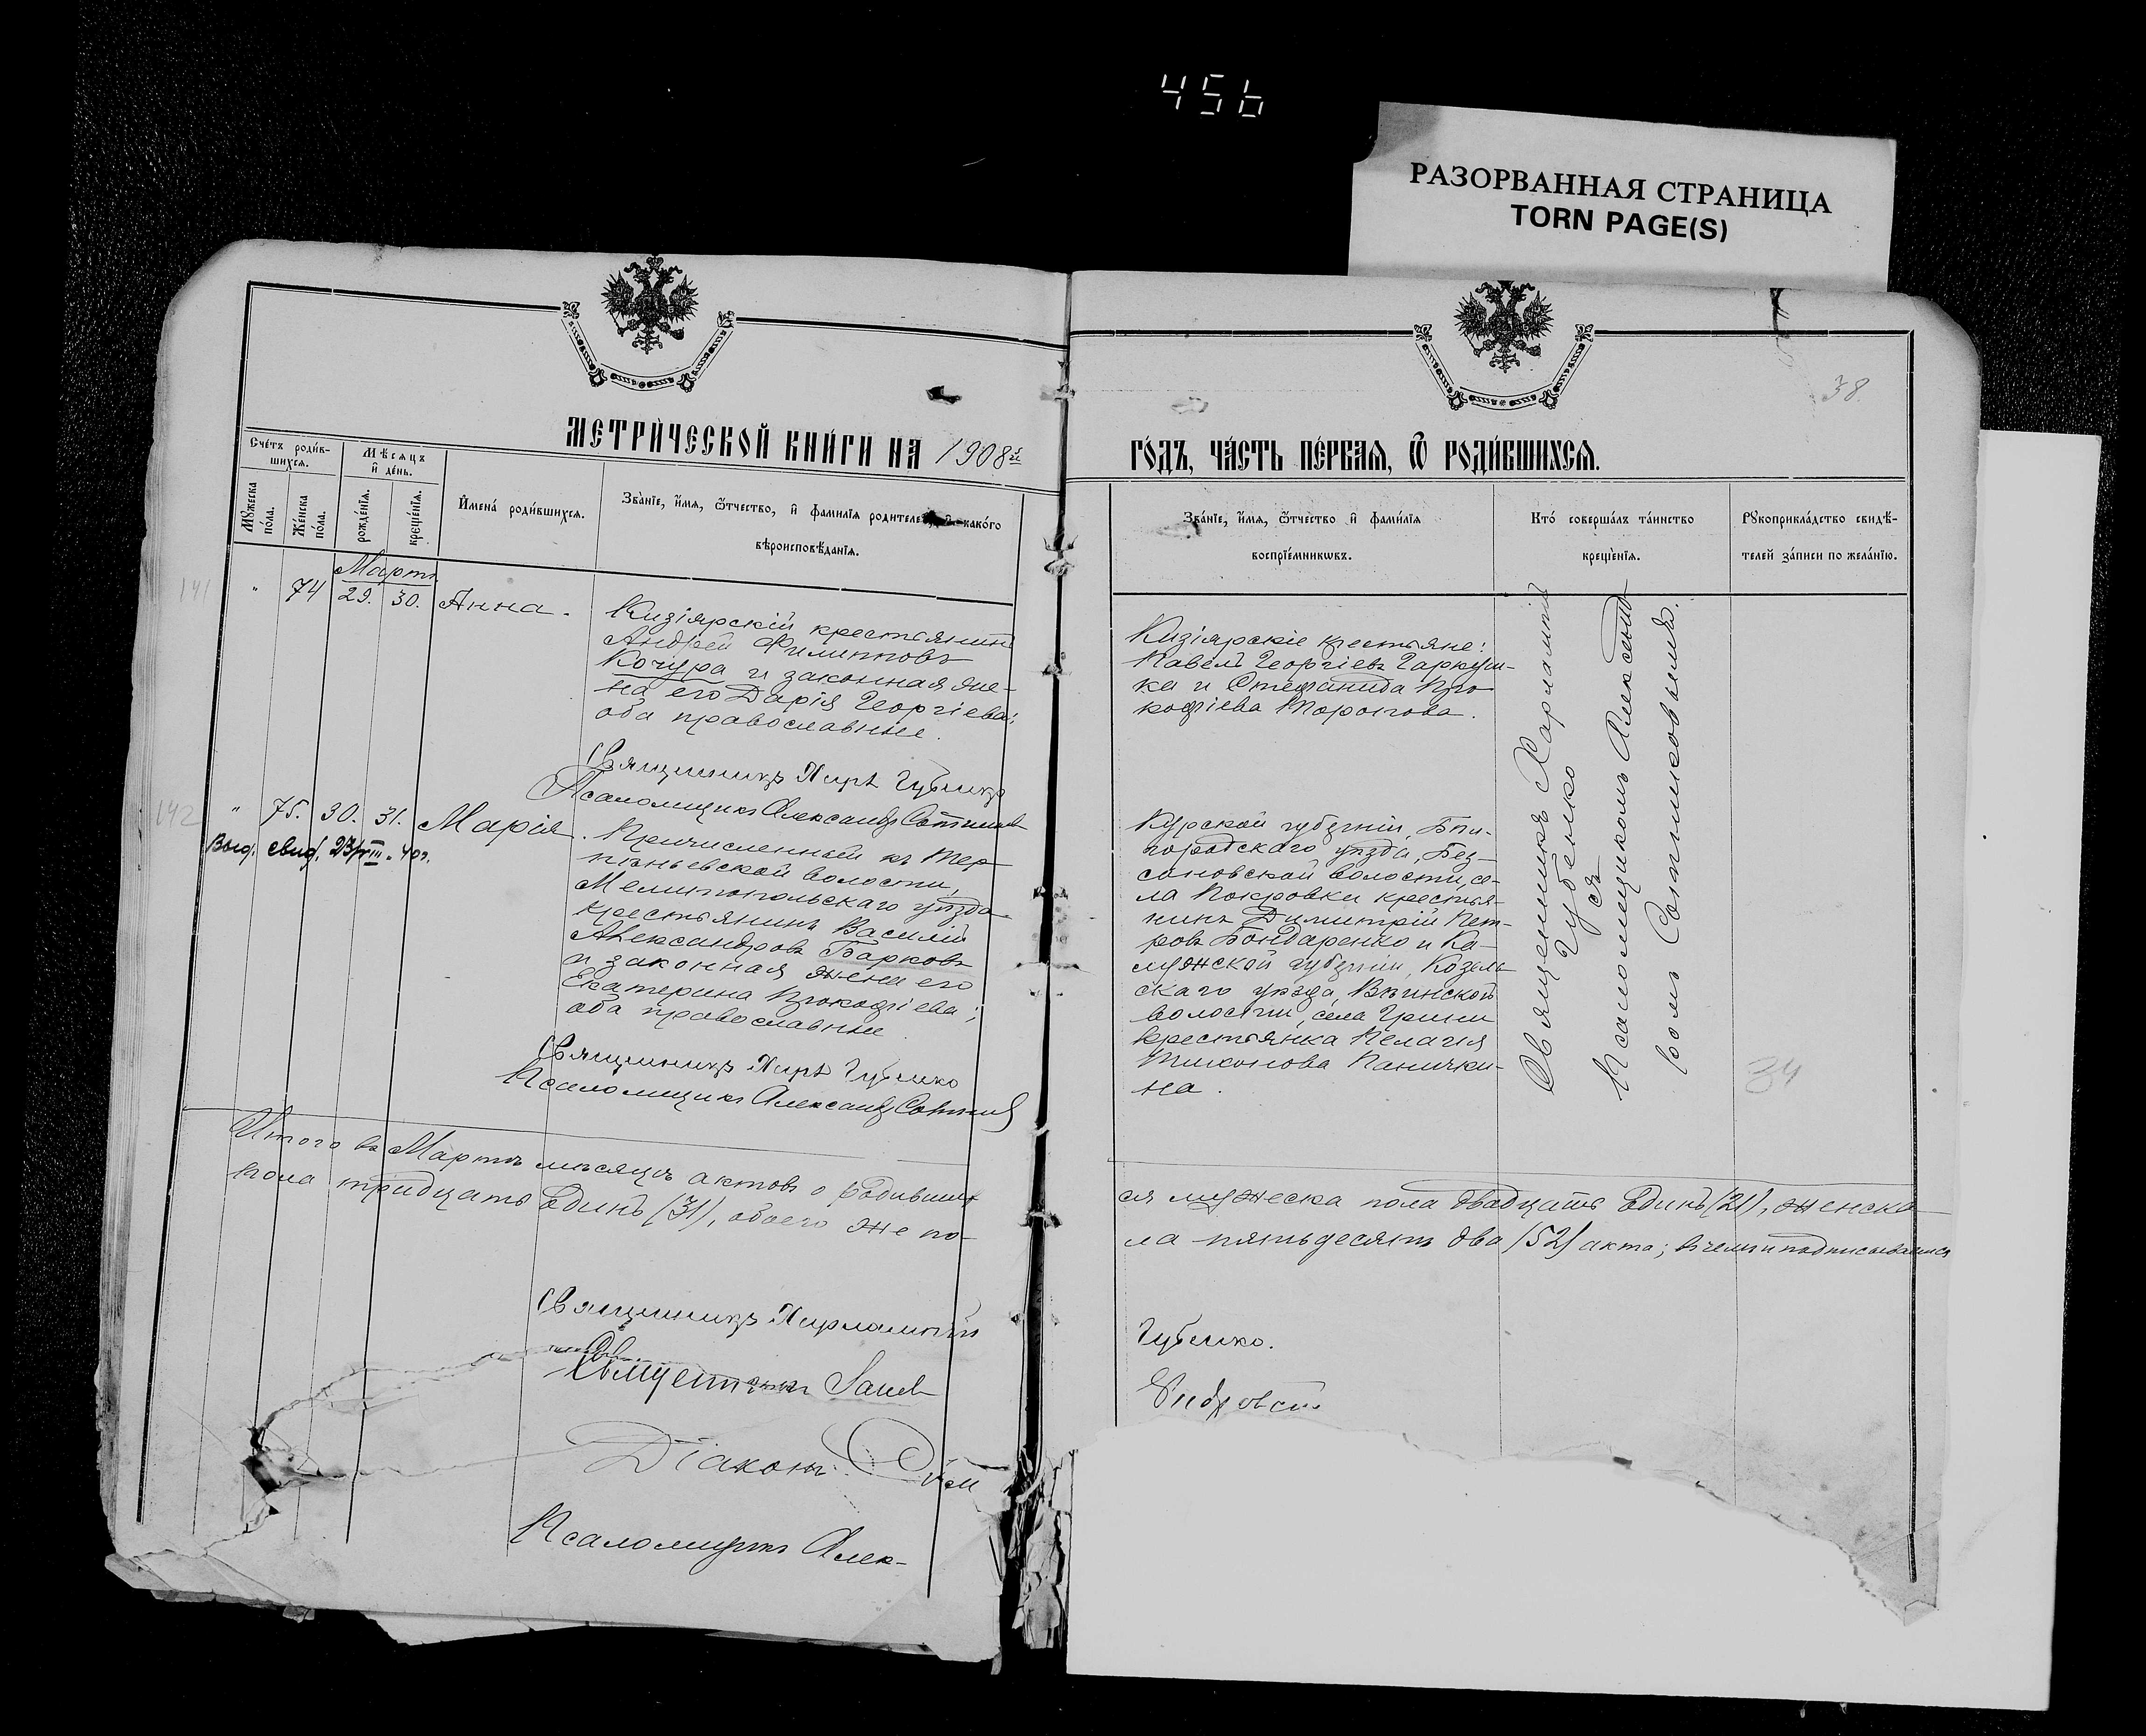 456
РАЗОРВАННАЯ СТРАНИЦА
TORN PAGE(S)
38.
МЕТРИ́ЧЕСКОЙ КНИ́ГИ НА 1908й
ГО́ДЪ, ЧА́СТЬ ПЕ́РВАЯ, Ѿ РОДИ́ВШИХСЯ.
Сче́тъ роди́в-
шихся.
Мѣсяцъ
и̂ де́нь.
Мꙋжеска
по́ла.
Же́нска
по́ла.
рожде́нїя.
креще́нїя.
И̂мена́ роди́вшихся.
Зва́нїе, и̂́мя, ѻ҆́тчество, и̂ фами́лїя родителей, и̂ како́го
вѣроисповѣ́данїя.
Зва́нїе, и̂́мя, ѻ҆́тчество и̂ фами́лїя
воспрїе́мникѡвъ.
Кто́ соверша́лъ та́инство
креще́нїя.
Рꙋкоприкла́дство свидѣ́-
телей за́писи по жела́нїю.
Мартъ
141 " 74 29. 30. Анна.
Кизіярскій крестьянинъ
Андрей Филипповъ
Кочура и законная же-
на его Дарія Георгіева;
оба православные.
Священникъ Хар. Губенко
Псаломщикъ Александръ Сотник
Кизіярскіе крестьяне:
Павелъ Георгіевъ Гаркуш-
ка и Стефанида Про-
кофіева
Священникъ Харлампій
Губенко
съ
Псаломщикомъ Александ-
ромъ Сотниковымъ.
142 " 75. 30. 31. Марія.
Выд. свид. 23/VIII. 40г.
Причисленный къ Тер-
пѣньевской волости,
Мелитопольскаго уѣзда
крестьянинъ Василій
Александровъ Барковъ
и законная жена его
Екатерина Прокофіева;
оба православные.
Священникъ Хар. Губенко
Псаломщикъ Александръ Сотник
Курской губерніи, Бѣл-
городскаго уѣзда, Без-
соновской волости, се-
ла Покровки крестья-
нинъ Димитрій Пет-
ровъ Бондаренко и Ка-
лужской губерніи, Козель-
скаго уѣзда,
волости, села
крестьянка Пелагія
Тихонова Панички-
на.
34
Итого въ Мартѣ мѣсяцѣ актовъ о родивших-
ся мужеска пола двадцать единъ (21), женска
пола тридцать единъ (31), обоего же по-
ла пятьдесятъ два (52) акта; въ чемъ и подписываемся
Священникъ Харлампій
Губенко.
Діаконъ
Псаломщикъ Алек-